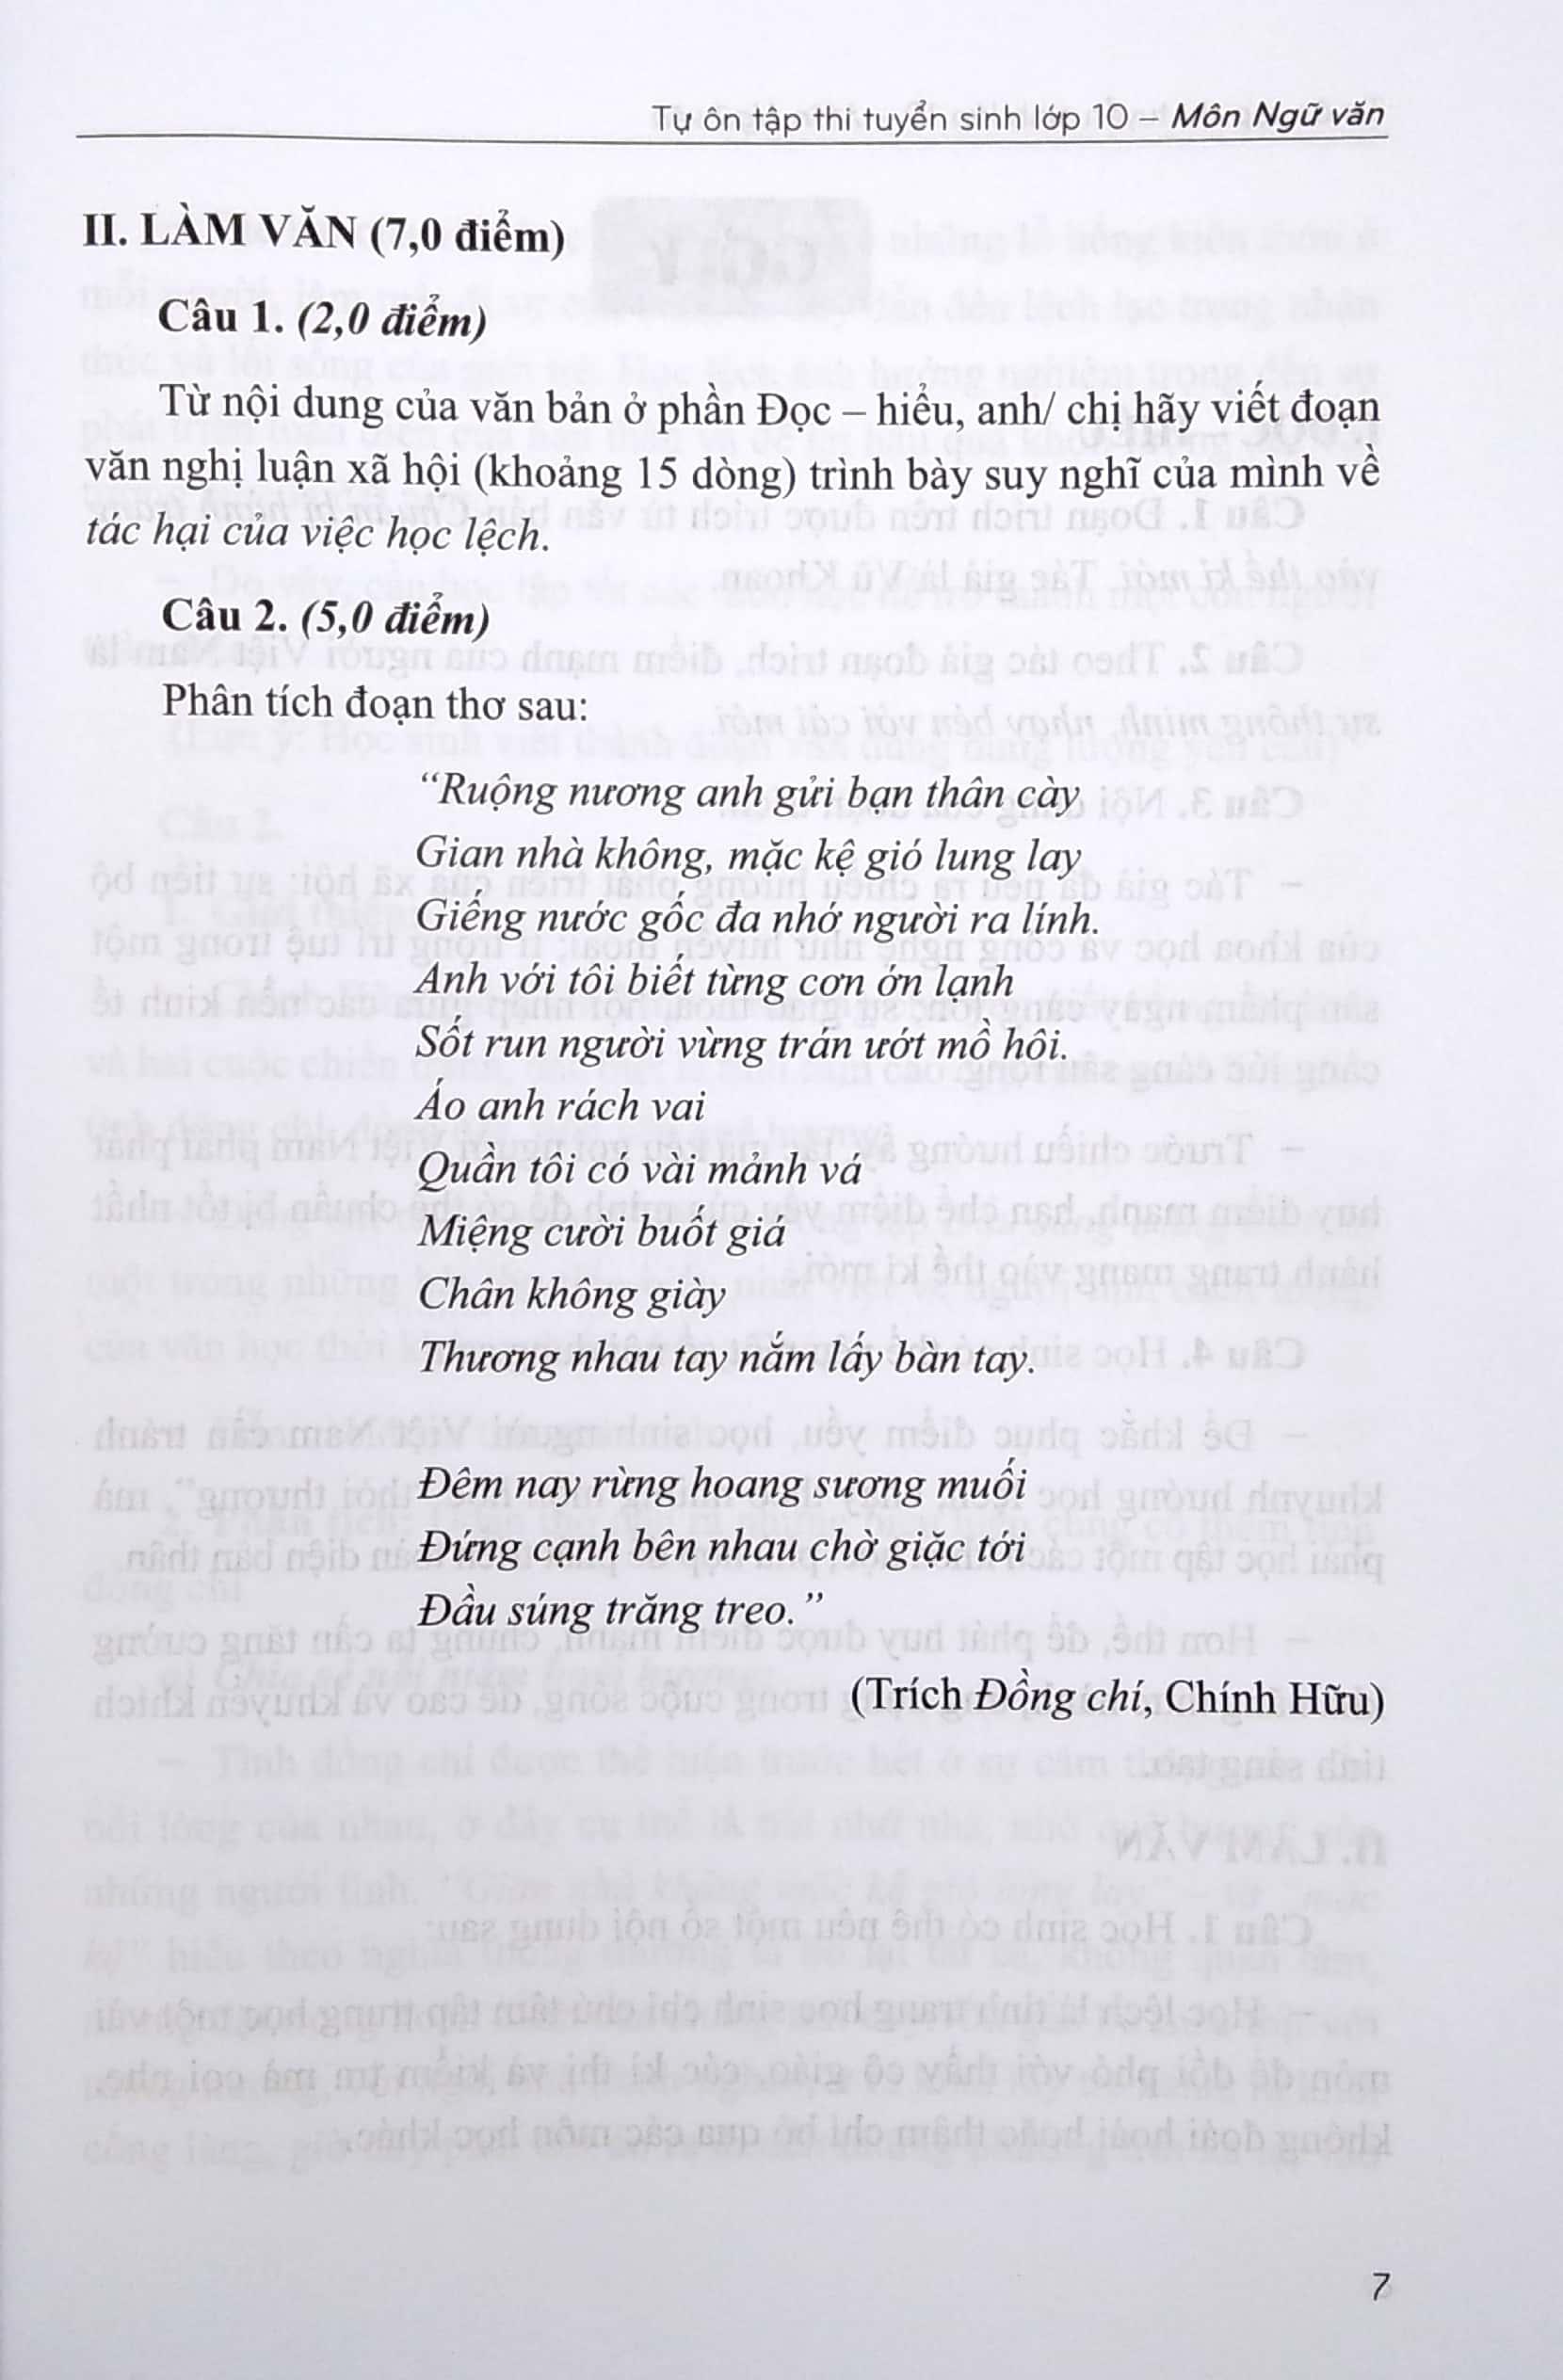 Tự ôn tập thi tuyển sinh lớp 10 – Môn Ngữ văn
II. LÀM VĂN (7,0 điểm)
Câu 1. (2,0 điểm)
Từ nội dung của văn bản ở phần Đọc – hiểu, anh/ chị hãy viết đoạn
văn nghị luận xã hội (khoảng 15 dòng) trình bày suy nghĩ của mình về
tác hại của việc học lệch.
Câu 2. (5,0 điểm)
Phân tích đoạn thơ sau:
“Ruộng nương anh gửi bạn thân cày
Gian nhà không, mặc kệ gió lung lay
Giếng nước gốc đa nhớ người ra lính.
Anh với tôi biết từng cơn ớn lạnh
Sốt run người vừng trán ướt mồ hôi.
Áo anh rách vai
Quần tôi có vài mảnh vá
Miệng cười buốt giá
Chân không giày
Thương nhau tay nắm lấy bàn tay.
Đêm nay rừng hoang sương muối
Đứng cạnh bên nhau chờ giặc tới
Đầu súng trăng treo.”
(Trích Đồng chí, Chính Hữu)
7